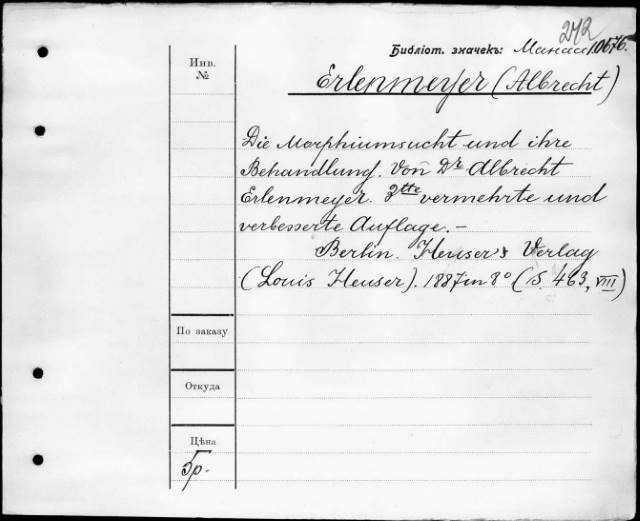 242
Библіот. значекъ: Манасс 10676.
Инв.
№
Erlenmeyer (Albrecht)
Die Morphiumsucht und ihre
Behandlung. Von Dr Albrecht
Erlenmeyer. 3tte vermehrte und
verbesserte Auflage. –
Berlin. Heuser's Verlag
(Louis Heuser). 1887 in 8° (S. 463, VIII)
По заказу
Откуда
Цѣна
5р.